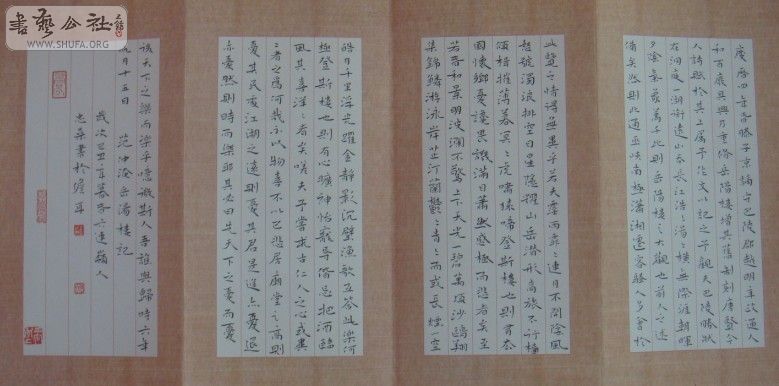 慶曆四年春滕子京謫守巴陵郡越明年政通人
和百廢具興乃重修岳陽樓增其舊制刻唐賢今
人詩賦於其上屬予作文以記之予觀夫巴陵勝狀
在洞庭一湖銜遠山吞長江浩々湯々橫無際涯朝暉
夕陰氣象萬千此則岳陽樓之大觀也前人之述
備矣然則北通巫峽南極瀟湘遷客騷人多會於
此覽之情得無異乎若夫霪雨霏々連日不開陰風
怒號濁浪排空日星隱耀山岳潛形商旅不行檣
傾楫摧薄暮冥々虎嘯猿啼登斯樓也則有去
國懷鄉憂讒畏譏滿目蕭然感極而悲者矣至
若春和景明波瀾不驚上下天光一碧萬頃沙鷗翔
集錦鱗游泳岸芷汀蘭鬱々青々而或長煙空
皓月千里浮光躍金靜影沉璧漁歌互答此樂何
極登斯樓也則有心曠神怡寵辱偕忘把酒臨
風其喜洋々者矣嗟夫予嘗求古仁人之心或異
二者之為何哉不以物喜不以己悲居廟堂之高則
憂其民處江湖之遠則憂其君是進亦憂退
亦憂然則時而樂耶其必曰先天下之憂而憂
後天下之樂而樂乎噫微斯人吾誰與歸時六年
九月十五日 范仲淹岳陽樓記
歲次己丑年暮春六連嶺人
忠葉書於儋耳
書藝公社
WWW.SHUFA.ORG